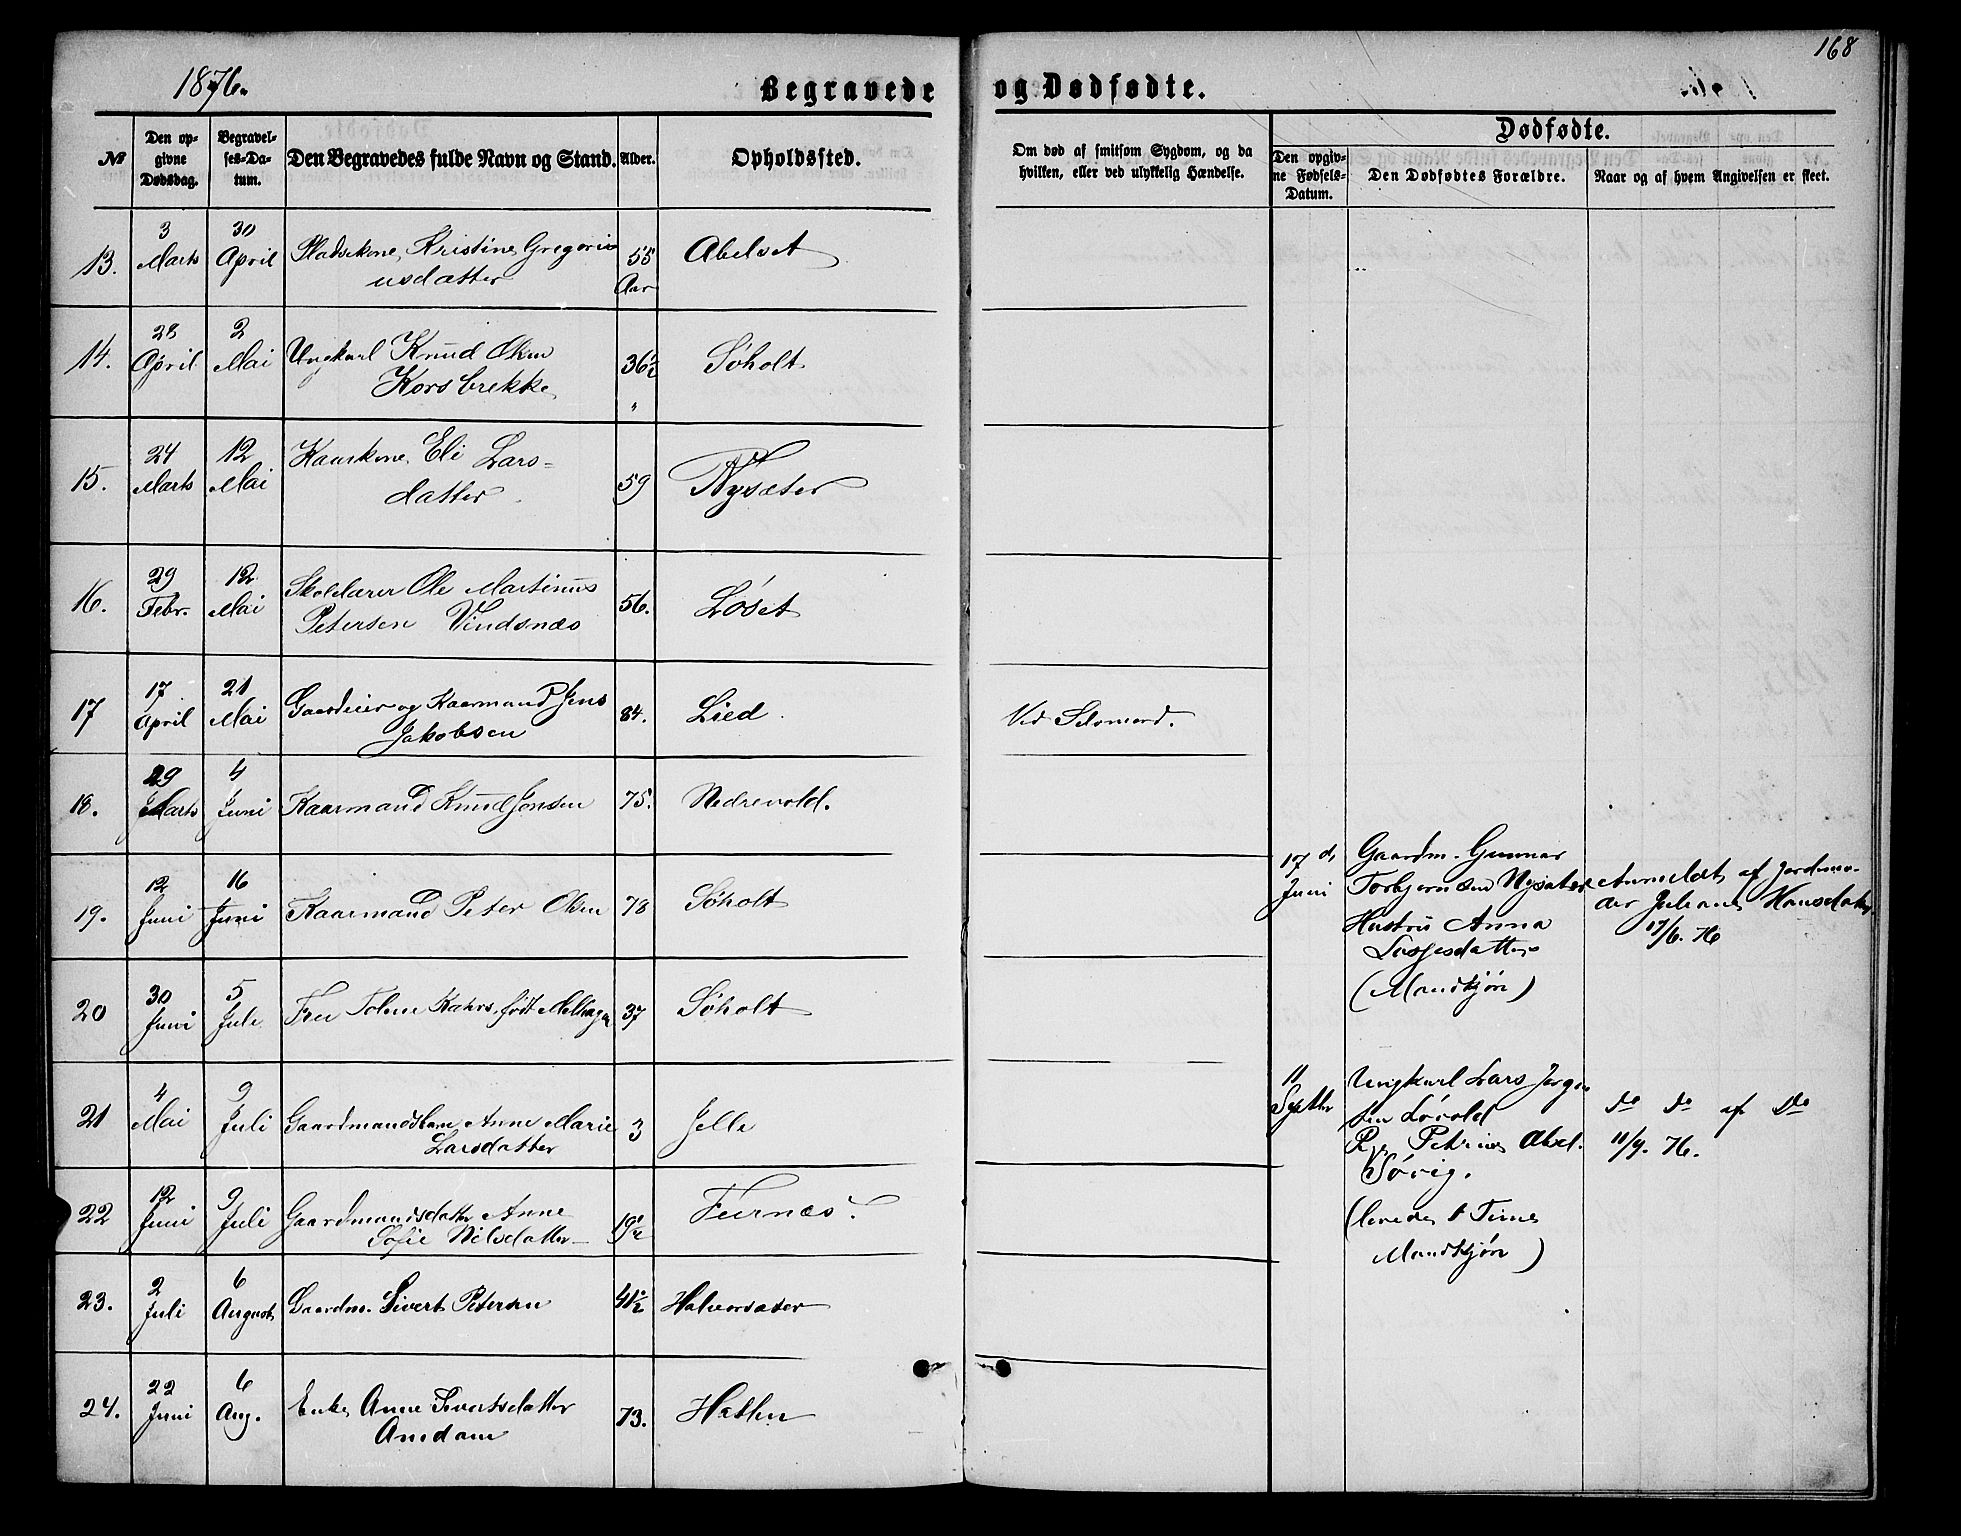 168
1876.
Begravede og Dødfødte.
№
Den opgivne Dødsdag.
Begravelses-Datum.
Den Begravedes fulde Navn og Stand.
Alder.
Opholdssted.
Om død af smitsom Sygdom, og da
hvilken, eller ved ulykkelig Hændelse.
Dødfødte.
Den opgivne Fødsels-Datum.
Den Dødfødtes Forældre.
Naar og af hvem Angivelsen er skeet.
13. 3 Marts 30 April Pladskone Kristine Gregori
usdatter 55 Aar Abelset
14. 28 April 2 Mai Ungkarl Knud Olsen
Korsbrekke 36½ " Søholt
15. 24 Marts 12 Mai Kaarkone Eli Lars-
datter 59 Nysæter
16. 29 Febr. 12 Mai Skolelærer Ole Martinus
Petersen Vindsnæs 56. Løset
17 17 April 21 Mai Gaardeier og Kaarmand Jens
Jakobsen 84. Lied. Ved Selvmord.
18. 29 Marts 4 Juni Kaarmand Knud Jonsen 75. Nedrevold.
19. 12 Juni 16 Juni Kaarmand Peter Olsen 78 Søholt
20 30 Juni 5 Juli Fru Kahrs, født 37 Søholt
21 4 Mai 9 Juli Gaardmandsbarn Anne Marie
Larsdatter 3 Jelle
22 12 Juni 9 Juli Gaardmandsdatter Anne
Sofie Nilsdatter 19½ Furnæs.
23. 2 Juli 6 August Gaardm. Sivert Petersen 41½ Halvorsæter
24. 22 Juni 6 Aug. Enke Anne Sivertsdatter
Amdam 73. Hatlen
17d Juni
Gaardm. Gunnar
Torbjørnsen Nysæter
Hustru Anna
Lassesdatter
(Mandkjøn)
Anmeldt af Jordmo-
der Juliane Hansdatter
17/6. 76
11 Septbr
Ungkarl Lars Jørgen
sen Løvold
Pige Petrine Abel.
Søvig.
(levede 1 Time
Mandkjøn)
Do Do af Do
11/9. 76.